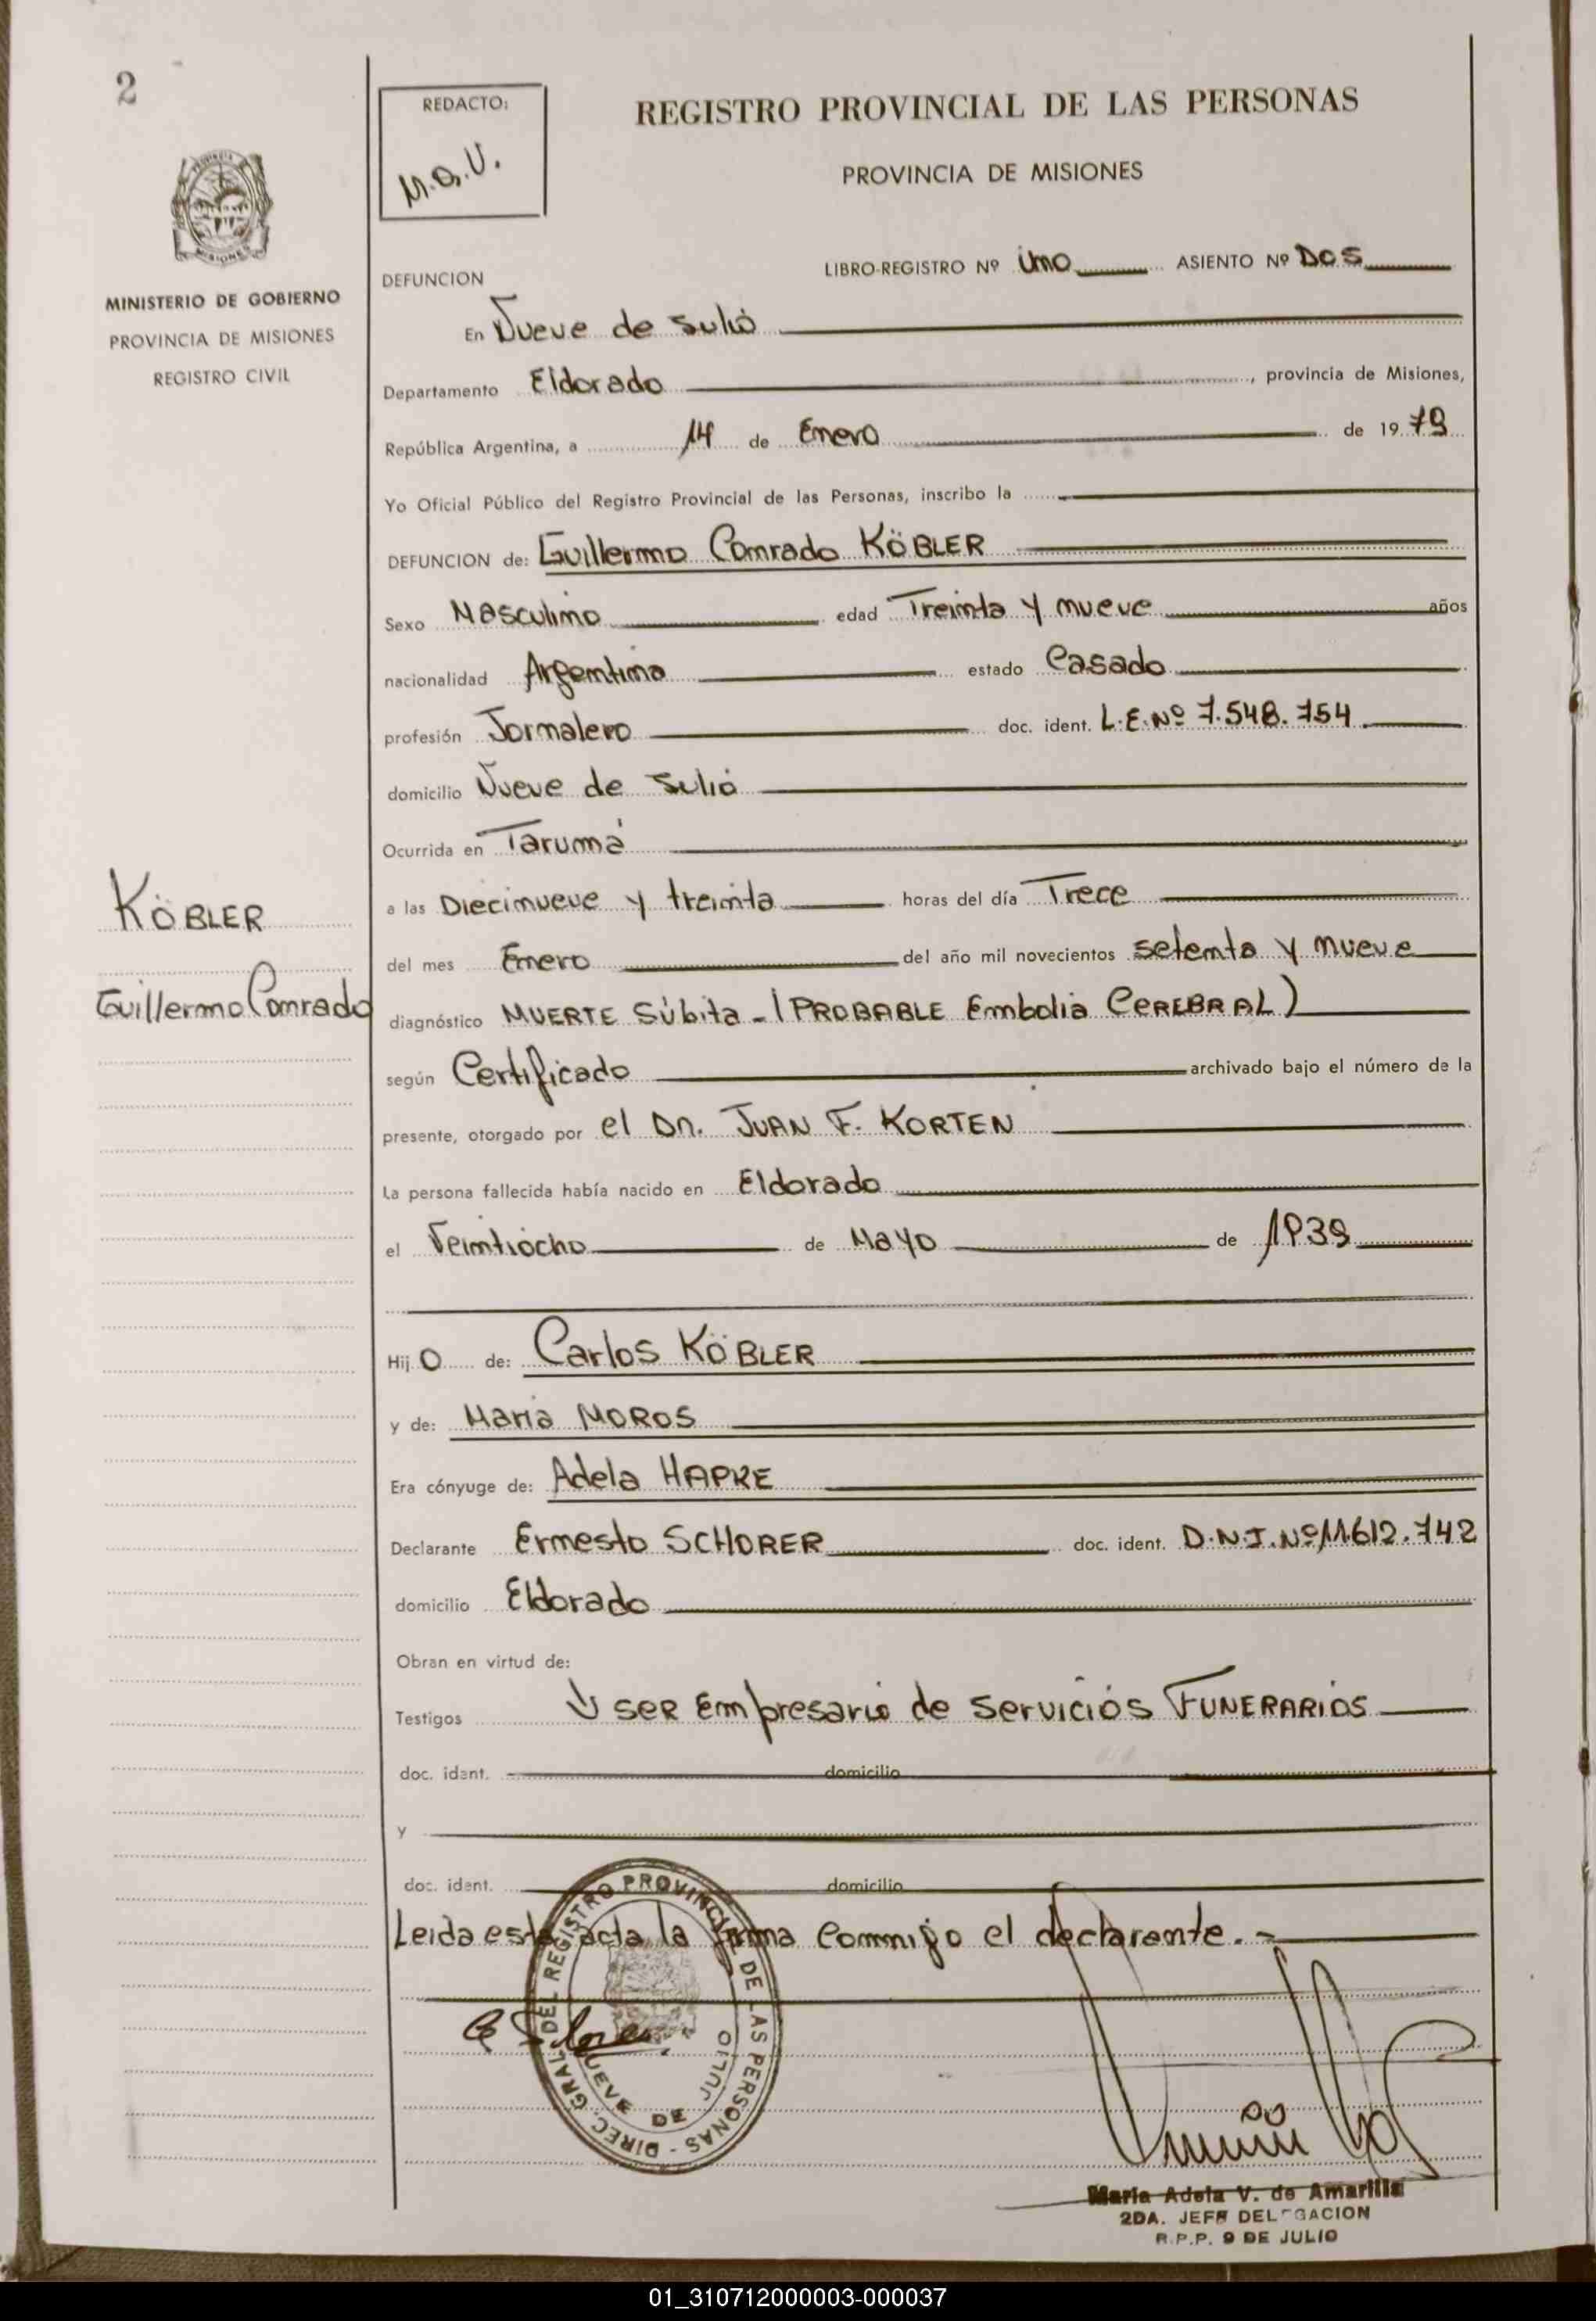 2
REDACTO:
M.A.V.
REGISTRO PROVINCIAL DE LAS PERSONAS
PROVINCIA DE MISIONES
PROVINCIA
MISIONES
MINISTERIO DE GOBIERNO
PROVINCIA DE MISIONES
REGISTRO CIVIL
LIBRO-REGISTRO Nº Uno ASIENTO Nº DOS
DEFUNCION
En Nueve de Julio
Departamento Eldorado, provincia de Misiones,
República Argentina, a 14 de Enero de 1979
Yo Oficial Público del Registro Provincial de las Personas, inscribo la
DEFUNCION de: Guillermo Conrado KÖBLER
Sexo Masculino edad Treinta y nueve años
nacionalidad Argentina estado Casado
profesión Jornalero doc. ident. L.E.Nº 7.548.754
domicilio Nueve de Julio
Ocurrida en Tarumá
a las Diecinueve y treinta horas del día Trece
del mes Enero del año mil novecientos setenta y nueve
diagnóstico MUERTE Súbita - (PROBABLE Embolia CEREBRAL)
según Certificado archivado bajo el número de la
presente, otorgado por el Dn. JUAN F. KORTEN
La persona fallecida había nacido en Eldorado
el Veintiocho de Mayo de 1939
KÖBLER
Guillermo Conrado
Hijo de: Carlos KÖBLER
y de: Maria MOROS
Era cónyuge de: Adela HAPKE
Declarante Ernesto SCHORER doc. ident. D.N.I.Nº 11.612.742
domicilio Eldorado
Obran en virtud de:
Testigos SER Empresario de Servicios FUNERARIOS
doc. ident. domicilio
y
doc. ident. domicilio
Leida esta acta la firma conmigo el declarante.-
DIREC. GRAL. DEL REGISTRO PROVINCIAL DE LAS PERSONAS -
NUEVE DE JULIO
Maria Adela V. de Amarilla
2DA. JEFA DELEGACION
R.P.P. 9 DE JULIO
01_310712000003-000037